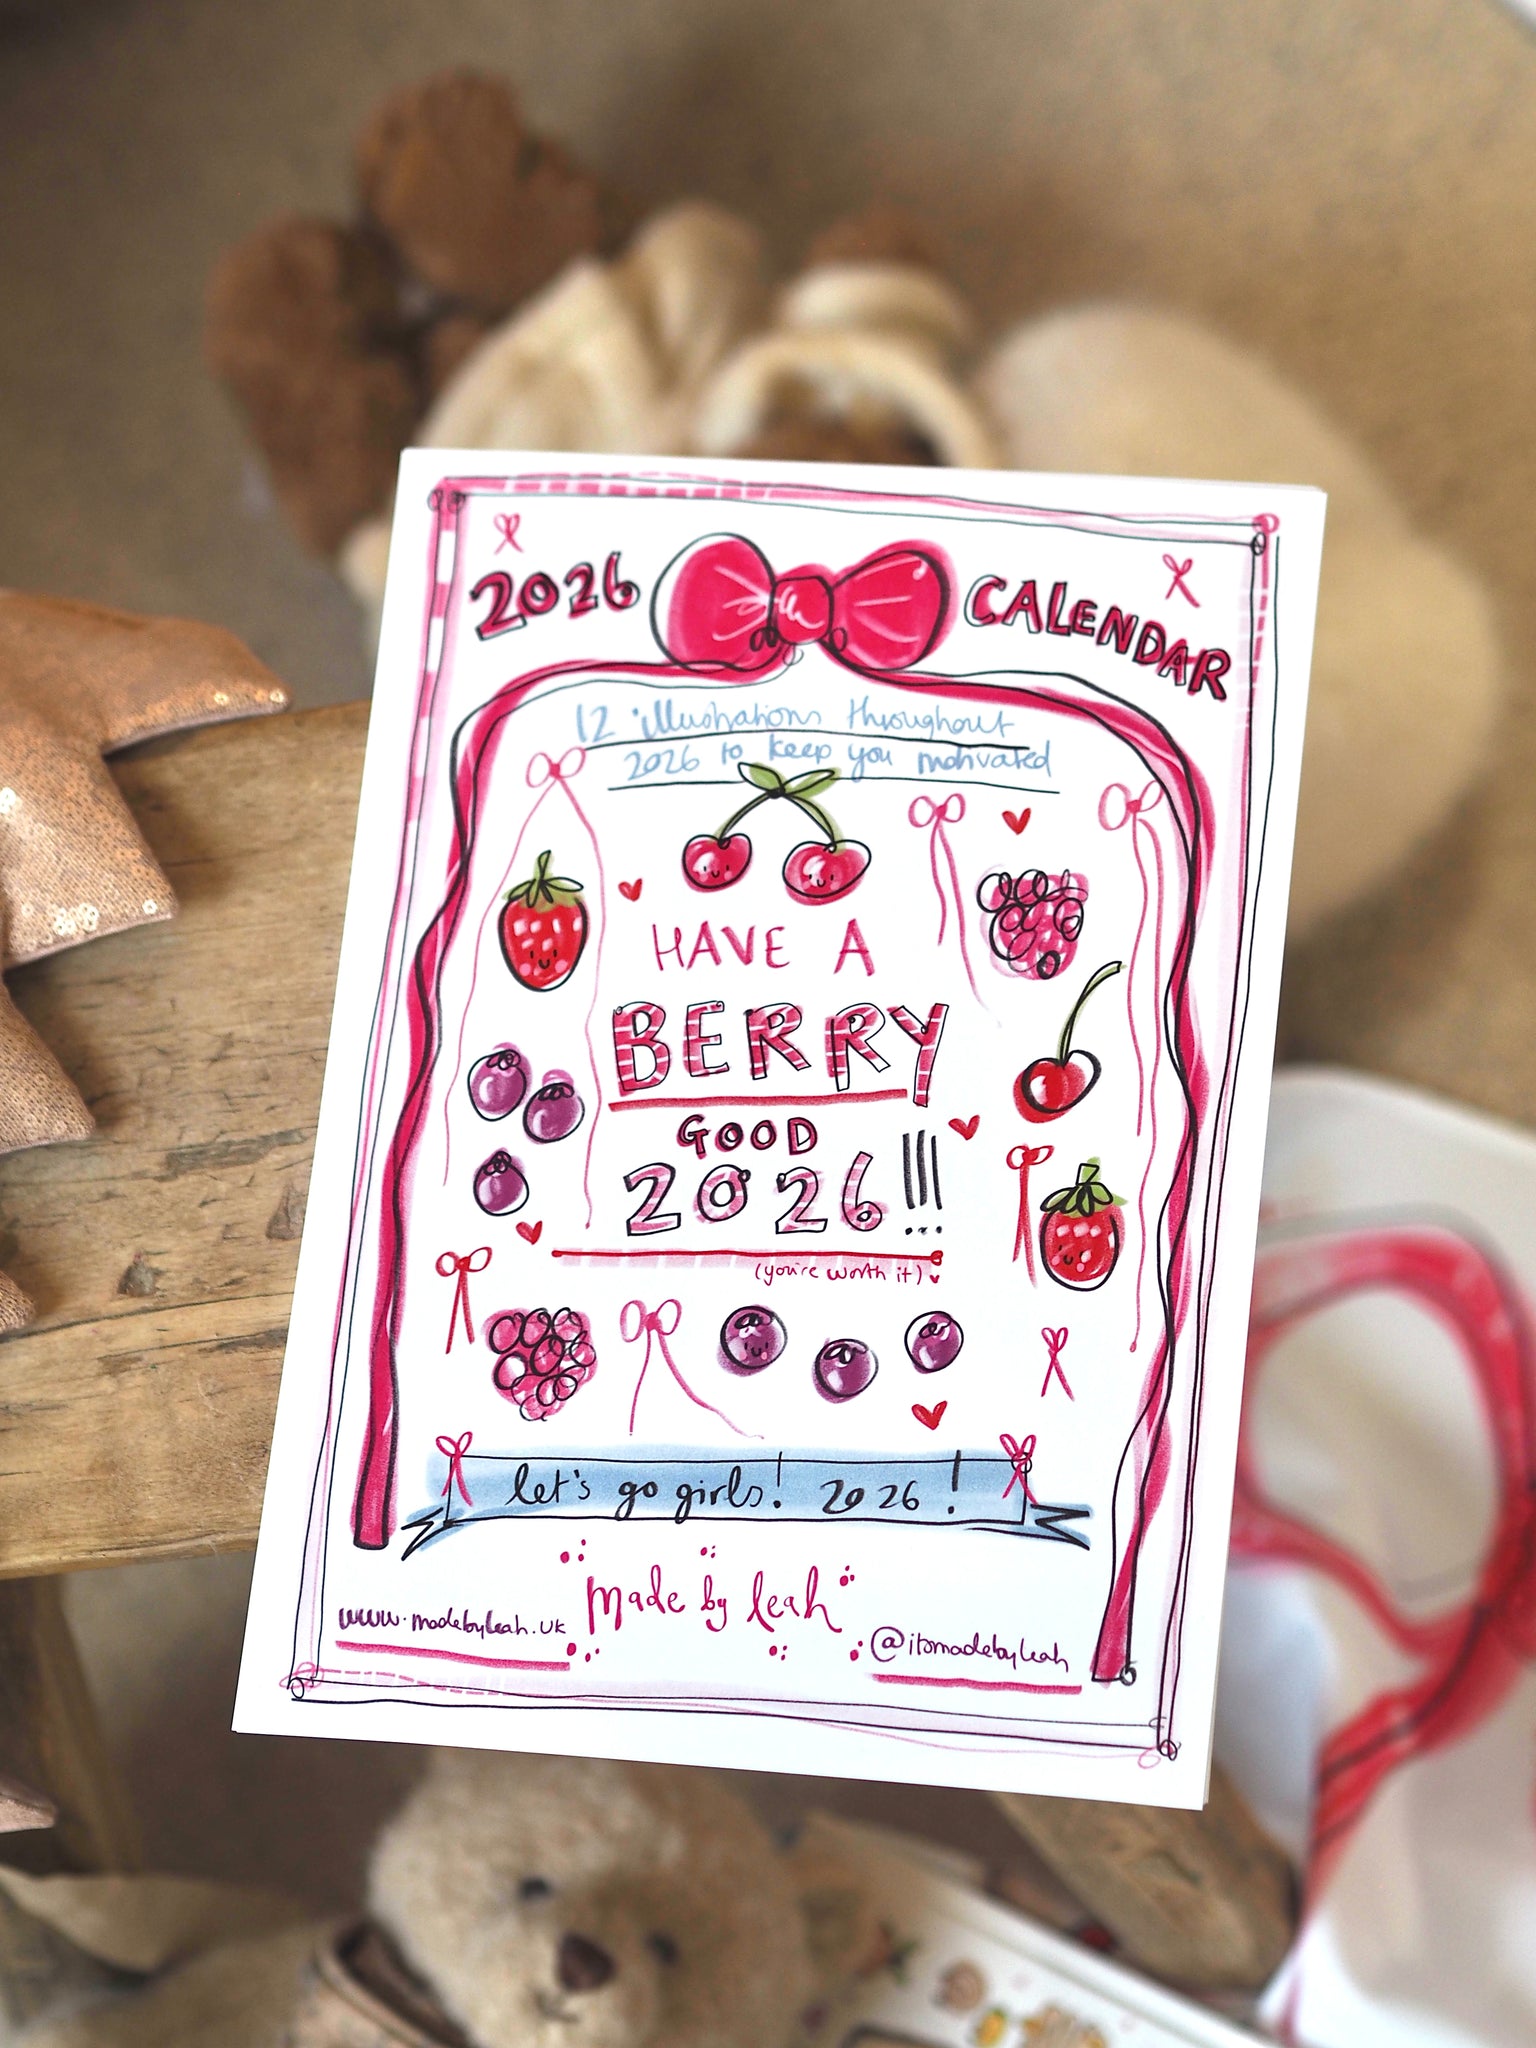 2026 CALENDAR
12 illustrations throughout
2026 to keep you motivated
HAVE A
BERRY
GOOD
2026!!!
(you're worth it)
let's go girls! 2026!
made by leah
www.madebyleah.uk
@itsmadebyleah